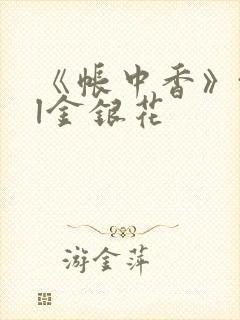 《帐中香》
|金银花
游金萍